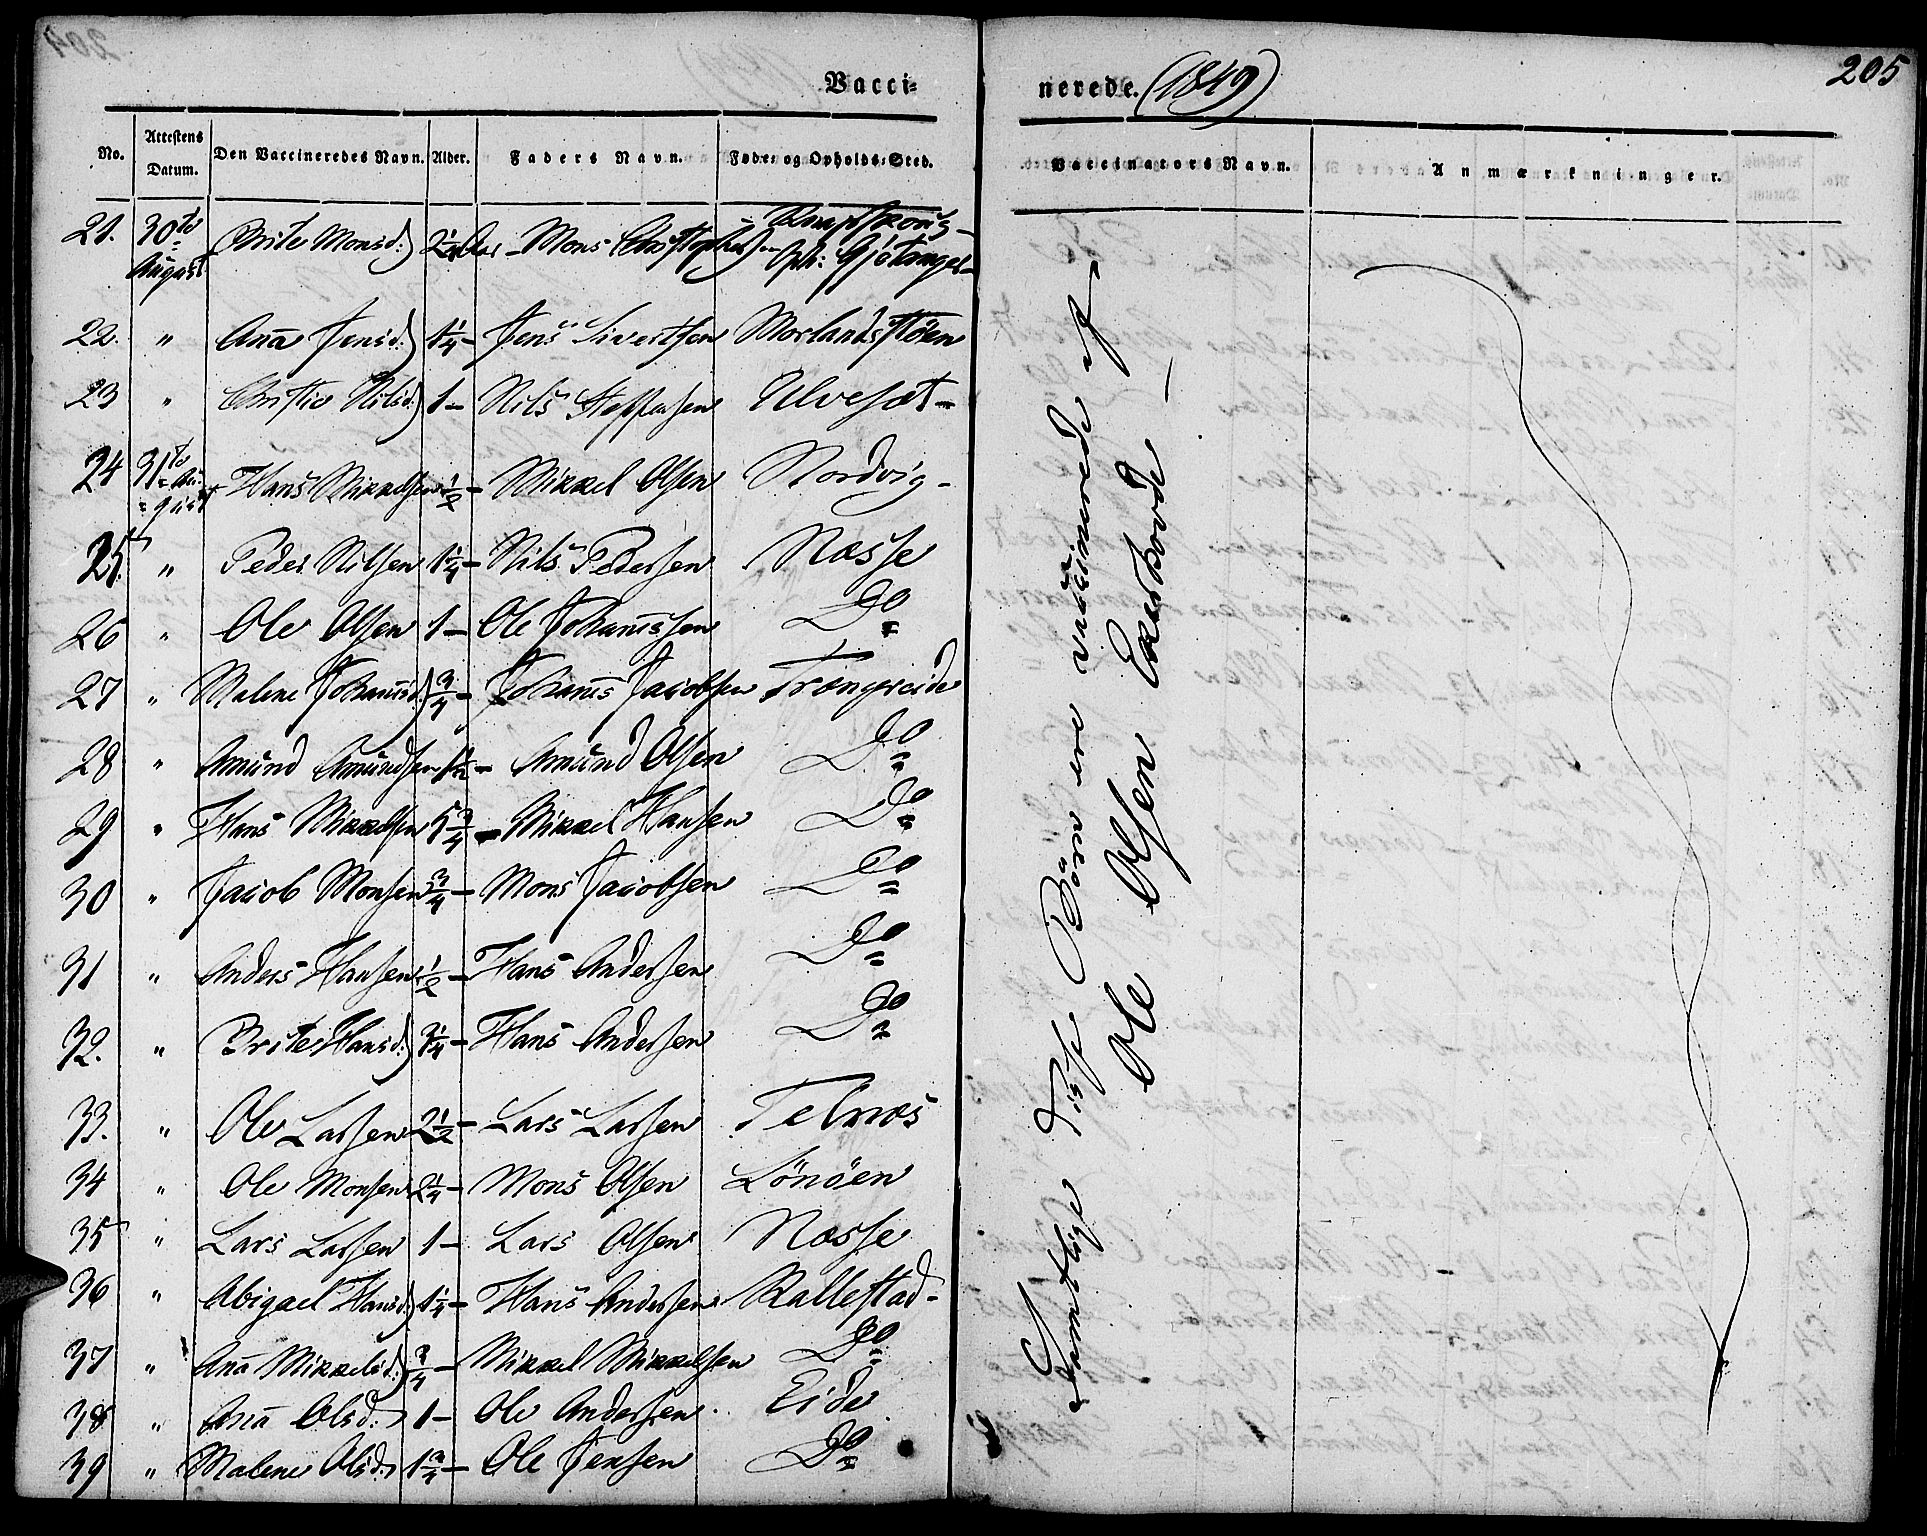 Vacci-
nerede. (1849)
205
No. Attestens Datum. Den Vaccineredes Navn. Alder. Faders Navn. Føde- og Opholds-Sted.
Vaccinators Navn. Anmærkninger.
21. 30te August Brite Monsd: 2 1/4 Aar - Mons
22. " Ana Jensd: 1 1/4 - Jens Sivertsen Morlandstøen
23 " Christie Nilsd: 1 - Nils Steffensen Ulvesæt -
24 31te August Hans Mikkelsen 1/2 - Mikkel Olsen Nordvig -
25. " Peder Nilsen 1 1/4 - Nils Pedersen Næsse
26 " Ole Olsen 1 - Ole Johannssen Do
27 " Malene Johannsd: 3/4 - Johanns Jacobsen Trængereide
28 " Amund Amundsen 1 1/2 - Amund Olsen Do
29 " Hans Mikkelsen 5 3/4 - Mikkel Hansen Do
30 " Jacob Monsen 3/4 - Mons Jacobsen Do
31 " Anders Hansen 1/2 - Hans Andersen Do
32. " Brite Hansd: 3 1/4 - Hans Andersen Do
33. " Ole Larsen 2 1/2 - Lars Larsen Telnæs
34 " Ole Monsen 2 1/4 - Mons Olsen Lönöen
35 " Lars Larsen 1 - Lars Olsen Næsse
36 " Abigael Hansd: 1 1/4 - Hans Andersen Rallestad -
37 " Ana Mikkelsd: 3/4 - Mikkel Mikkelsen Do
38 " Ana Olsd: 1 - Ole Andersen. Eide
39 " Malene Olsd: 1 3/4 - Ole Jensen Do
Samtlige disse Börn ere vaccinerede af
Ole Olsen Ekerhovde -